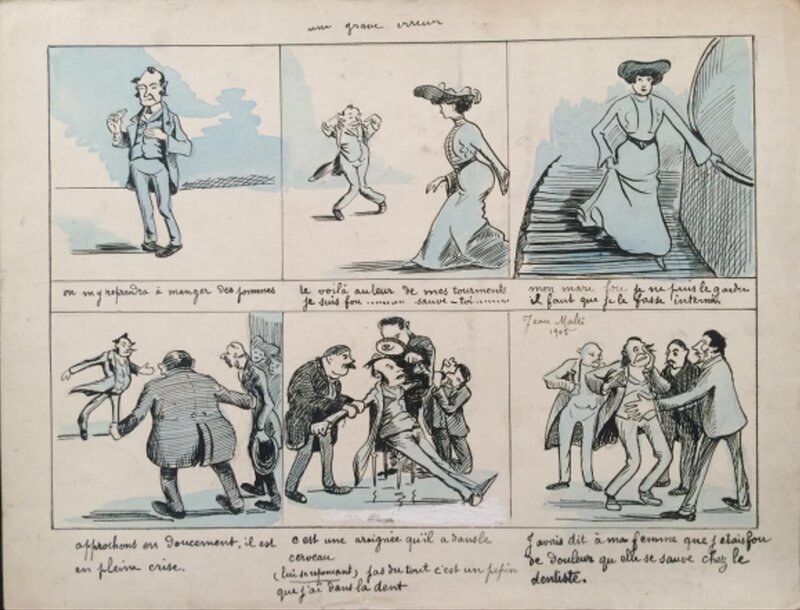 une grave erreur
on m'y reprendra à manger des pommes
te voilà auteur de mes tourments
je suis fou ........... sauve-toi...........
mon mari fou je ne puis le garder
il faut que je le fasse interner
Jean Malei
1905
approchons en doucement, il est
en pleine crise.
c est une araignée qu'il a dans le
cerveau
(lui se reprenant) pas du tout c'est un pepin
que j'ai dans la dent
J'avais dit à ma femme que j'etais fou
de douleur qu elle se sauve chez le
dentiste.